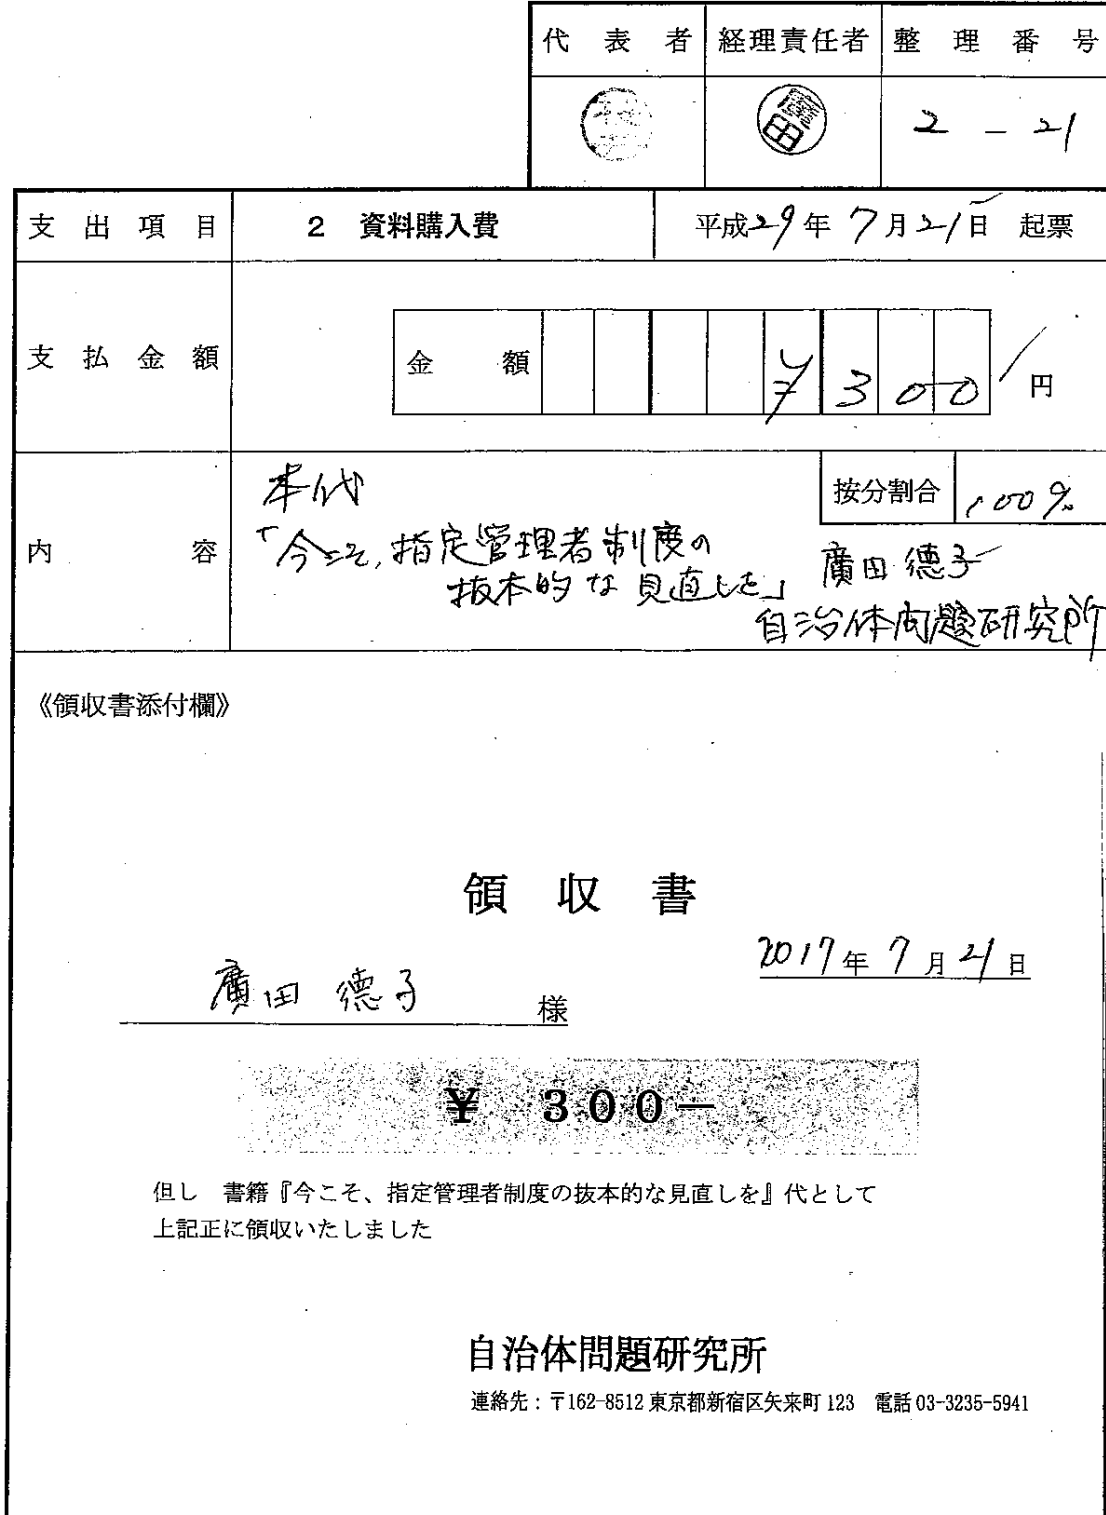 代表者 経理責任者 整理番号
廣田 2-21
支出項目 2 資料購入費 平成29年7月21日 起票
支払金額 金額 ¥300 円
本代 按分割合 100%
内容 「今こそ、指定管理者制度の 廣田 徳子
抜本的な見直しを」
自治体問題研究所
《領収書添付欄》
領収書
2017年7月21日
廣田 徳子 様
¥ 300－
但し 書籍『今こそ、指定管理者制度の抜本的な見直しを』代として
上記正に領収いたしました
自治体問題研究所
連絡先：〒162-8512 東京都新宿区矢来町 123 電話 03-3235-5941